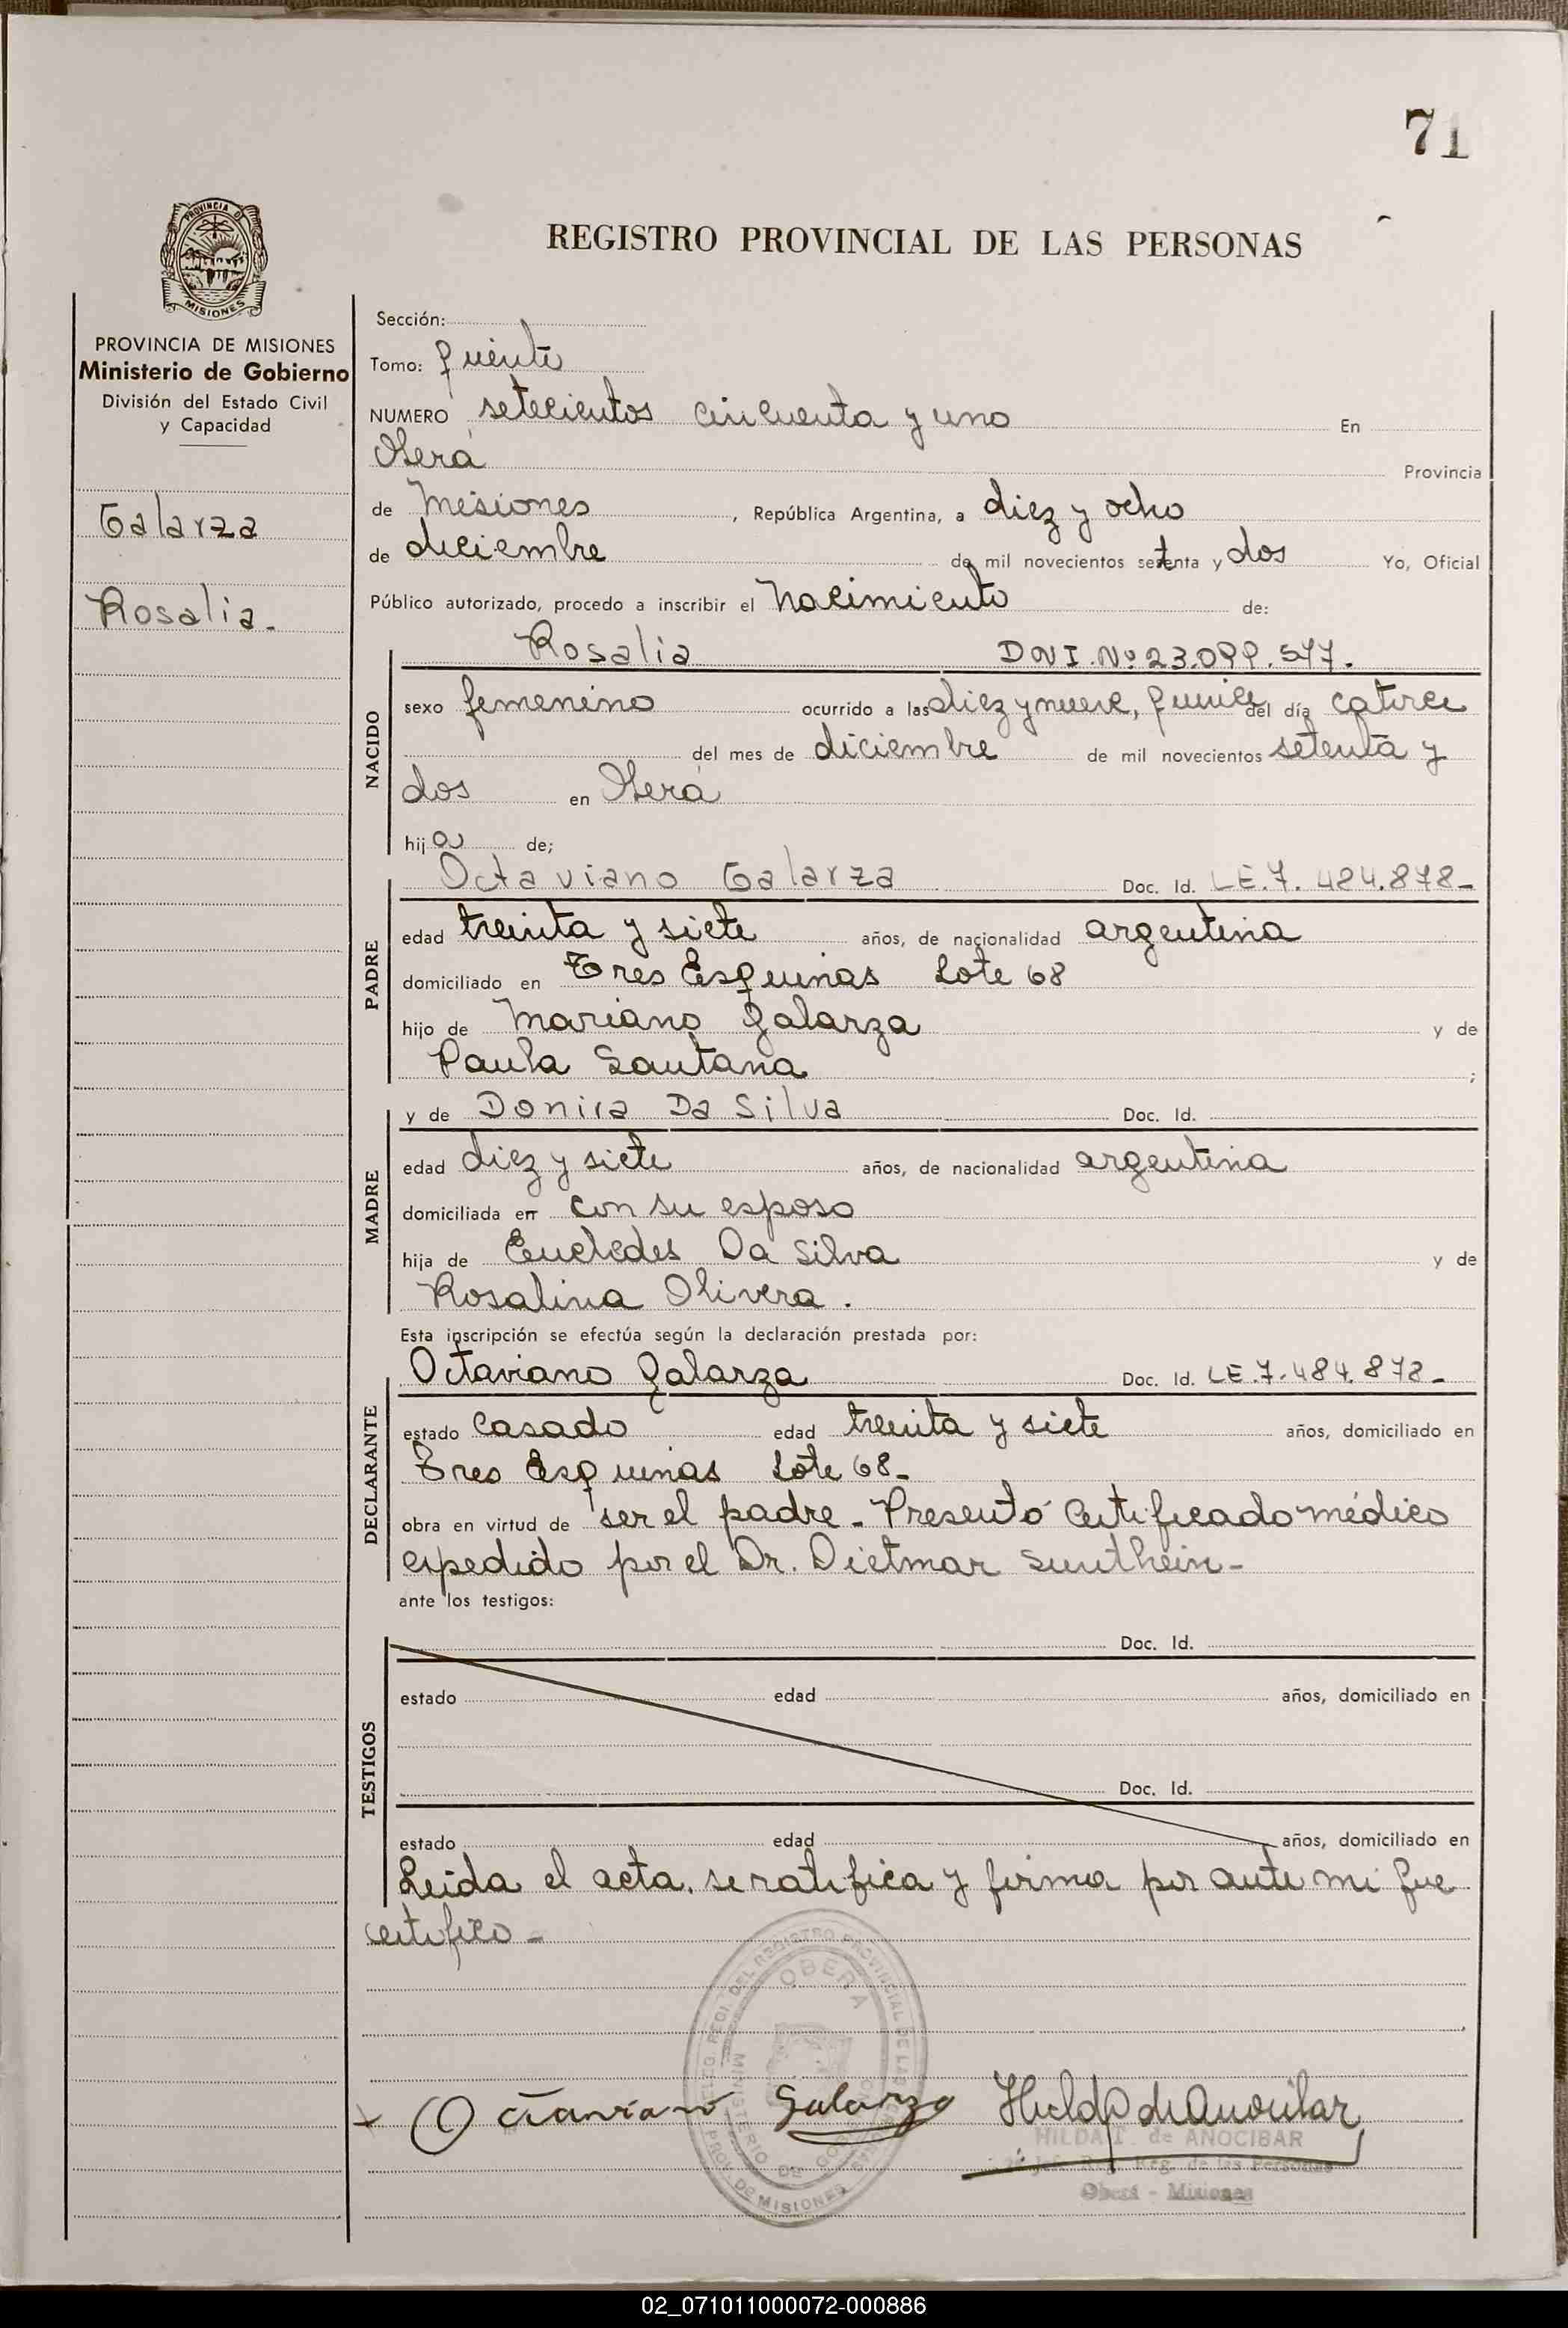 71
REGISTRO PROVINCIAL DE LAS PERSONAS
PROVINCIA DE MISIONES
Ministerio de Gobierno
División del Estado Civil
y Capacidad
Galarza
Rosalia.
Sección:
Tomo: quinto
NUMERO setecientos cincuenta y uno En
Oberá Provincia
de Misiones, República Argentina, a diez y ocho
de diciembre de mil novecientos setenta y dos Yo, Oficial
Público autorizado, procedo a inscribir el nacimiento de:
Rosalia DNI.Nº 23.099.577.
NACIDO
sexo femenino ocurrido a las diez y nueve, quince del día catorce
del mes de diciembre de mil novecientos setenta y
dos en Oberá
hija de;
Octaviano Galarza Doc. Id. LE.7.484.878-
PADRE
edad treinta y siete años, de nacionalidad argentina
domiciliado en Tres Esquinas Lote 68
hijo de Mariano Galarza y de
Paula Santana ;
y de Donira Da Silva Doc. Id.
MADRE
edad diez y siete años, de nacionalidad argentina
domiciliada en con su esposo
hija de Euclides Da Silva y de
Rosalina Olivera.
Esta inscripción se efectúa según la declaración prestada por:
Octaviano Galarza Doc. Id. LE.7.484.878-
DECLARANTE
estado casado edad treinta y siete años, domiciliado en
Tres Esquinas Lote 68-
obra en virtud de ser el padre - Presentó certificado médico
expedido por el Dr. Dietmar Sunthein-
ante los testigos:
TESTIGOS
Doc. Id.
estado edad años, domiciliado en
Doc. Id.
estado edad años, domiciliado en
Leida el acta, se ratifica y firma por ante mi que
certifico -
OBERA
MINISTERIO DE GOBIERNO
PROV. DE MISIONES
Octaviano Galarza Hilda de Anocibar
HILDA T. de ANOCIBAR
Reg. de las Personas
Oberá - Misiones
02_071011000072-000886